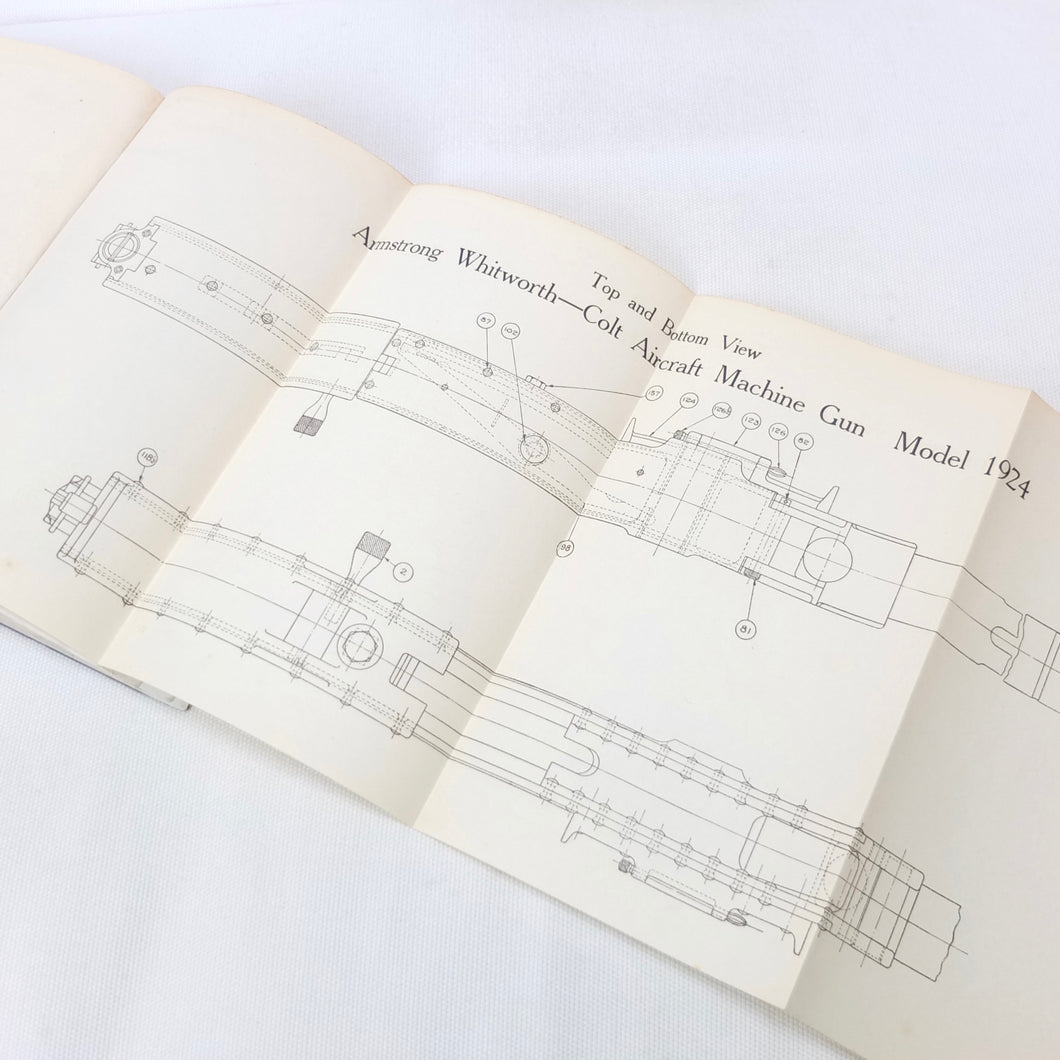 Top and Bottom View
Armstrong Whitworth—Colt Aircraft Machine Gun Model 1924
87
102
157
124
123
126
82
118
2
98
81